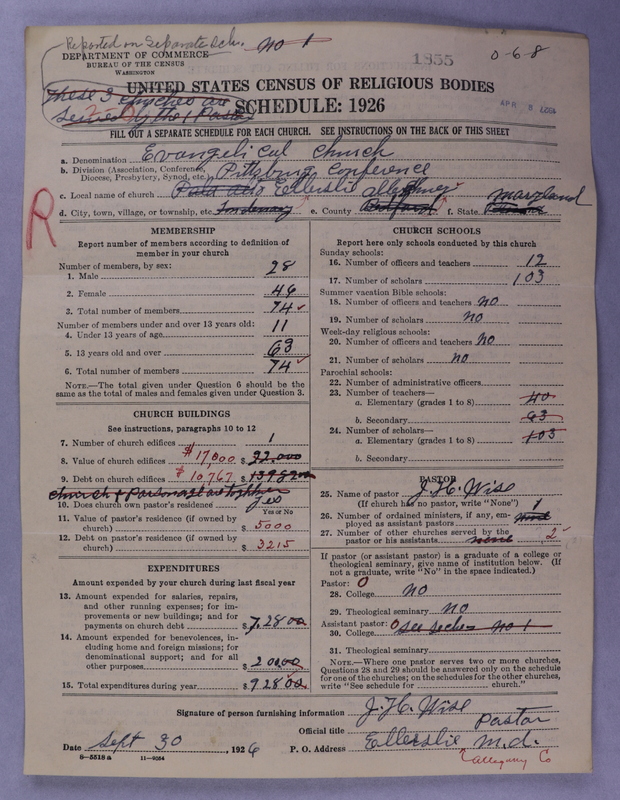 Reported on Separate Sch. no 1
DEPARTMENT OF COMMERCE
BUREAU OF THE CENSUS
WASHINGTON
1855
0-6-8
UNITED STATES CENSUS OF RELIGIOUS BODIES
these 3 churches are
served by the 1 Pastor
SCHEDULE: 1926
APR 8
FILL OUT A SEPARATE SCHEDULE FOR EACH CHURCH. SEE INSTRUCTIONS ON THE BACK OF THIS SHEET
a. Denomination Evangelical Church
b. Division (Association, Conference, Diocese, Presbytery, Synod, etc.) Pittsburg Conference
c. Local name of church Ellerslie Allegheny Maryland
d. City, town, village, or township, etc. e. County f. State
R
MEMBERSHIP
Report number of members according to definition of
member in your church
Number of members, by sex:
1. Male 28
2. Female 46
3. Total number of members 74
Number of members under and over 13 years old:
4. Under 13 years of age 11
5. 13 years old and over 63
6. Total number of members 74
NOTE.—The total given under Question 6 should be the
same as the total of males and females given under Question 3.
CHURCH BUILDINGS
See instructions, paragraphs 10 to 12
7. Number of church edifices 1
8. Value of church edifices $17,000 $ 22.000
9. Debt on church edifices $10,767 $ 13982.00
church & Parsonage are together
10. Does church own pastor's residence? yes
Yes or No
11. Value of pastor's residence (if owned by
church) $ 5000
12. Debt on pastor's residence (if owned by
church) $ 3215
EXPENDITURES
Amount expended by your church during last fiscal year
13. Amount expended for salaries, repairs,
and other running expenses; for im-
provements or new buildings; and for
payments on church debt $ 7,28.00
14. Amount expended for benevolences, in-
cluding home and foreign missions; for
denominational support; and for all
other purposes $ 200.00
15. Total expenditures during year $ 928.00
CHURCH SCHOOLS
Report here only schools conducted by this church
Sunday schools:
16. Number of officers and teachers 12
17. Number of scholars 103
Summer vacation Bible schools:
18. Number of officers and teachers no
19. Number of scholars no
Week-day religious schools:
20. Number of officers and teachers no
21. Number of scholars no
Parochial schools:
22. Number of administrative officers
23. Number of teachers—
a. Elementary (grades 1 to 8) 40
b. Secondary 63
24. Number of scholars—
a. Elementary (grades 1 to 8) 103
b. Secondary
PASTOR
25. Name of pastor J. H. Wise
(If church has no pastor, write "None")
26. Number of ordained ministers, if any, em-
ployed as assistant pastors 1
27. Number of other churches served by the
pastor or his assistants none 2
If pastor (or assistant pastor) is a graduate of a college or
theological seminary, give name of institution below. (If
not a graduate, write "No" in the space indicated.)
Pastor: 0
28. College no
29. Theological seminary no
Assistant pastor: 0
30. College see sech no 1
31. Theological seminary
NOTE.—Where one pastor serves two or more churches,
Questions 28 and 29 should be answered only on the schedule
for one of the churches; on the schedules for the other churches,
write "See schedule for church."
Signature of person furnishing information J. H. Wise
Official title Pastor
Date Sept 30, 1926 P. O. Address Ellerslie M.d.
Allegany Co
8-5518 a 11-9064